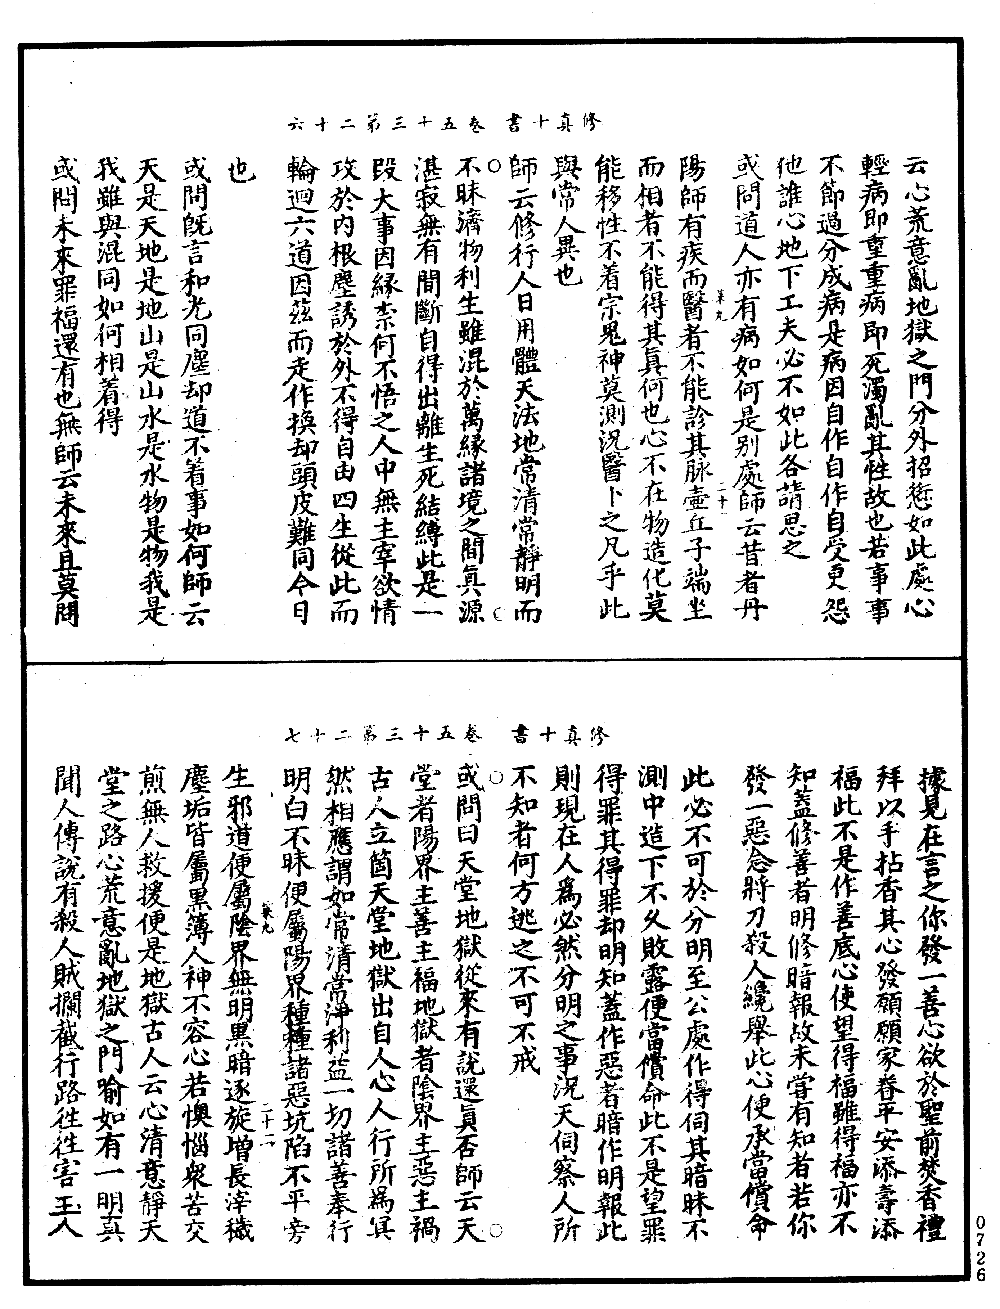 修真十書卷五十三第二十六
云心荒意亂地獄之門分外招愆如此處心
輕病即重重病即死濁亂其性故也若事事
不節過分成病是病因自作自作自受更怨
他誰心地下工夫必不如此各請思之
或問道人亦有病如何是別處師云昔者丹
陽師有疾而醫者不能診其脉壺丘子端坐
而相者不能得其真何也心不在物造化莫
能移性不着宗鬼神莫測況醫卜之凡乎此
與常人異也
師云修行人日用體天法地常清常靜明而
不昧濟物利生雖混於萬緣諸境之間真源
湛寂無有間斷自得出離生死結縛此是一
段大事因緣柰何不悟之人中無主宰欲情
攻於內根塵誘於外不得自由四生從此而
輪迴六道因茲而走作換却頭皮難同今日
也
或問旣言和光同塵却道不着事如何師云
天是天地是地山是山水是水物是物我是
我雖與混同如何相着得
或問未來罪福還有也無師云未來且莫問
修真十書卷五十三第二十七
據見在言之你發一善心欲於聖前焚香禮
拜以手拈香其心發願願家眷平安添壽添
福此不是作善底心使望得福雖得福亦不
知蓋修善者明修暗報故未嘗有知者若你
發一惡念將刀殺人纔舉此心便承當償命
此必不可於分明至公處作得伺其暗昧不
測中造下不久敗露便當償命此不是望罪
得罪其得罪却明知蓋作惡者暗作明報此
則現在人為必然分明之事況天伺察人所
不知者何方逃之不可不戒
或問曰天堂地獄從來有說還真否師云天
堂者陽界主善主福地獄者陰界主惡主禍
古人立箇天堂地獄出自人心人行所為冥
然相應謂如常清常淨利益一切諸善奉行
明白不昧便屬陽界種種諸惡坑陷不平旁
生邪道便屬陰界無明黑暗逐旋增長滓穢
塵垢皆屬黑簿人神不容心若懊惱衆苦交
煎無人救援便是地獄古人云心清意靜天
堂之路心荒意亂地獄之門喻如有一明真
聞人傳說有殺人賊攔截行路往往害玉人
0726